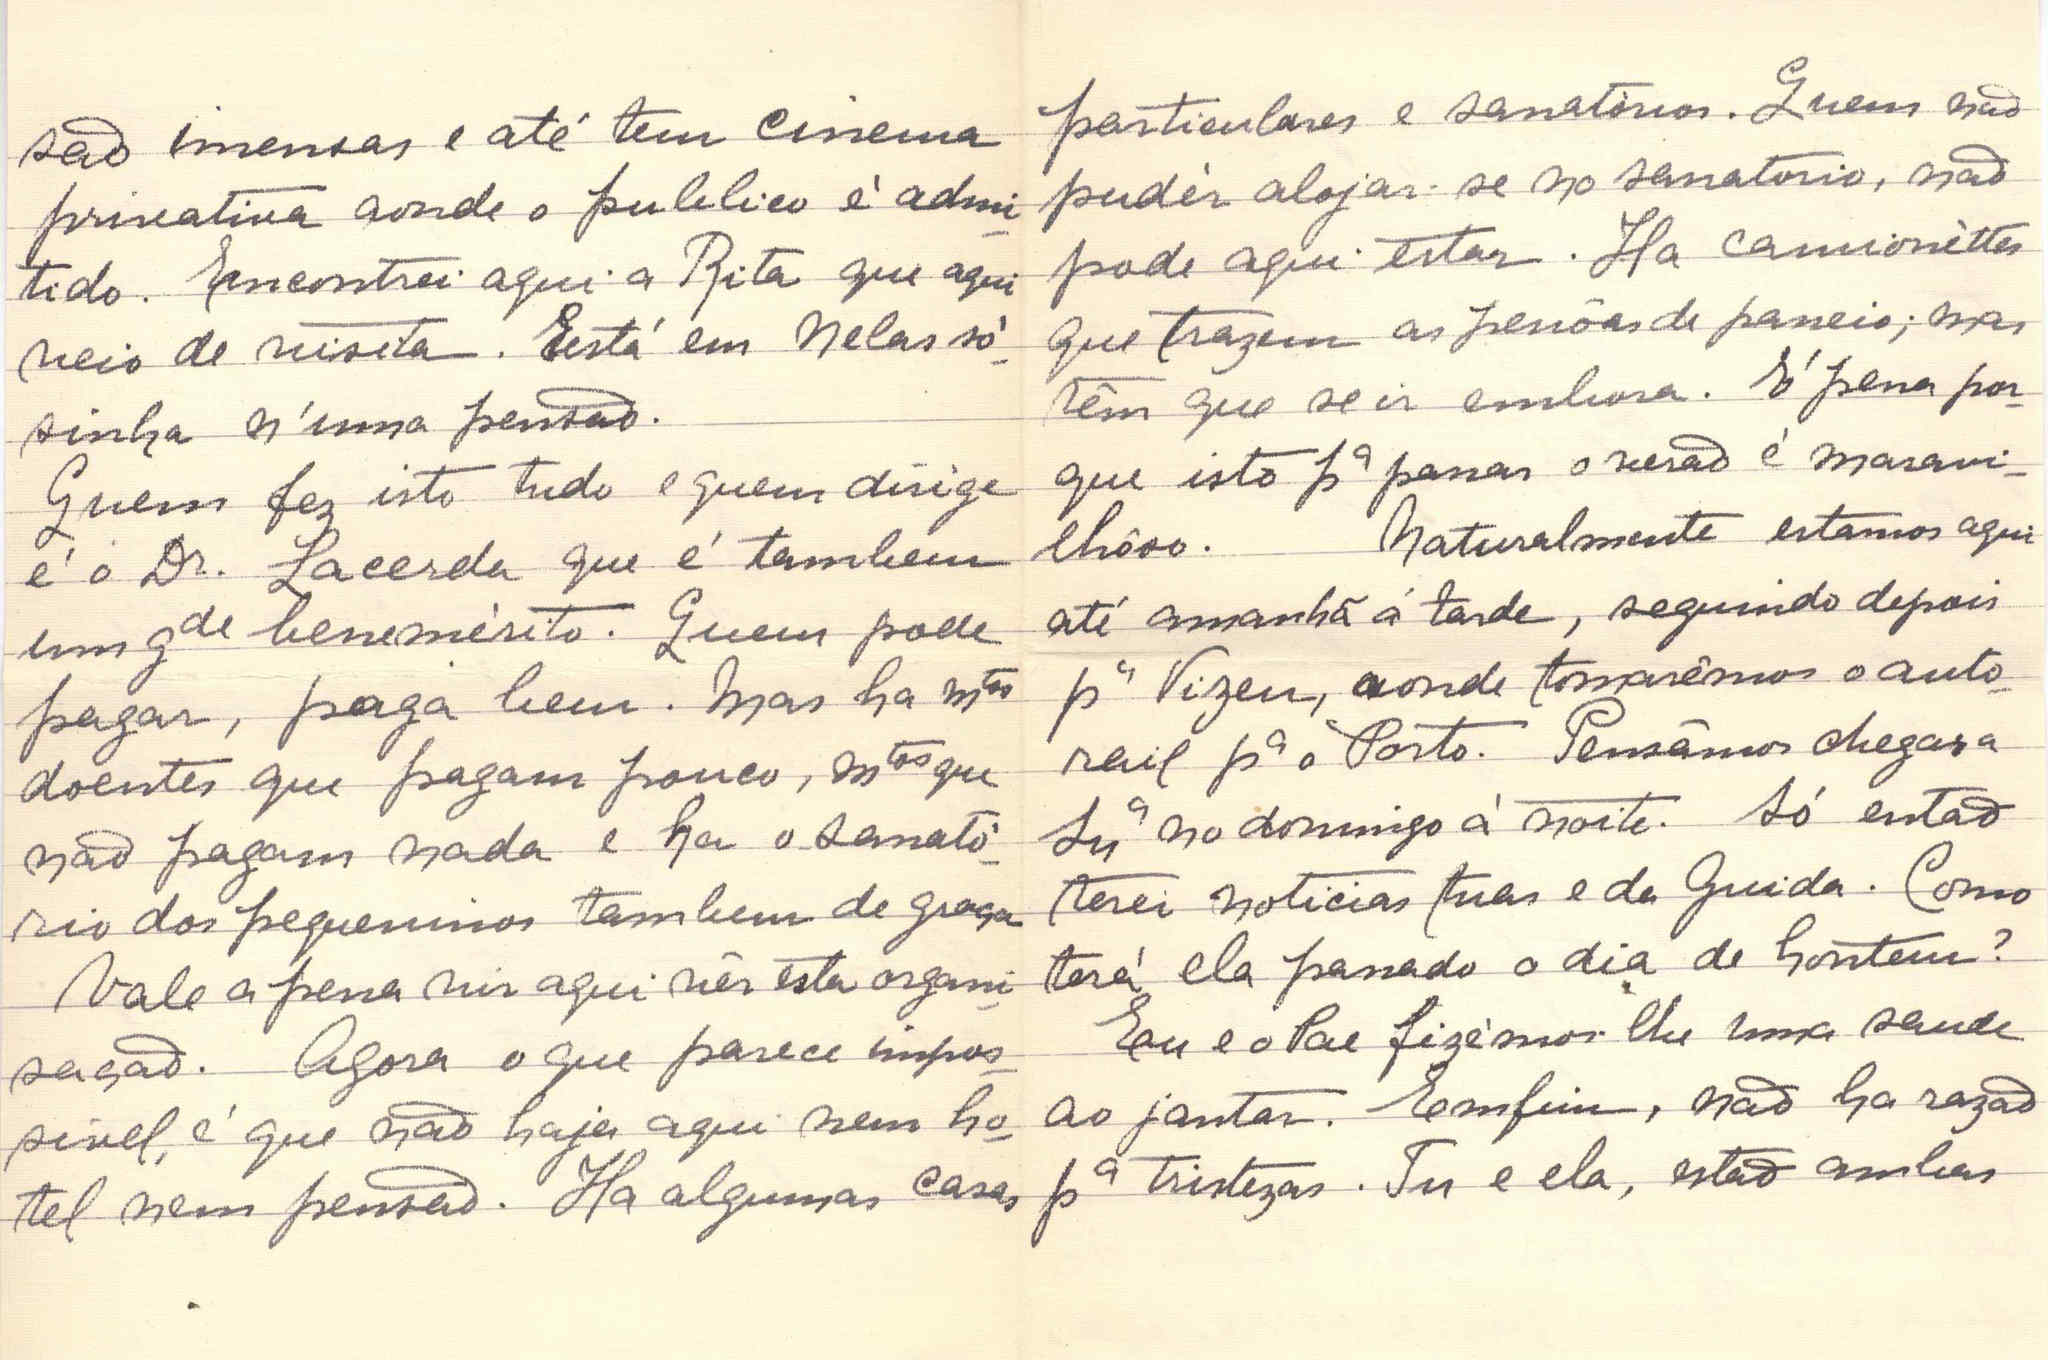 são imensas e até tem cinema
privativa aonde o publico é admi-
tido. Encontrei aqui a Rita que aqui
veio de visita. Está em Nelas só-
sinha n'uma pensão.
Quem fez isto tudo e quem dirige
é o Dr. Lacerda que é tambem
um gde benemérito. Quem pode
pagar, paga bem. Mas ha mtos
doentes que pagam pouco, mtos que
não pagam nada e ha o sanató-
rio dos pequeninos tambem de graça
Vale a pena vir aqui vêr esta organi-
sação. Agora o que parece impos-
sivel, é que não haja aqui nem ho-
tel nem pensão. Ha algumas casas
particulares e sanatórios. Quem não
pudér alojar-se no sanatorio, não
pode aqui estar. Ha camionéttes
que trazem as pessôas de passeio; mas
têm que se ir embora. É pena por-
que isto pª passar o verão é maravi-
lhôso. Naturalmente estamos aqui
até amanhã á tarde, seguindo depois
pª Vizeu, aonde tomarêmos o auto-
rail pª o Porto. Pensâmos chegar a
Lxª no domingo á noite. Só então
terei noticias tuas e da Guida. Como
terá ela passado o dia de hontem?
Eu e o Pae fizémos-lhe uma saude
ao jantar. Emfim, não ha razão
pª tristezas. Tu e ela, estão ambas